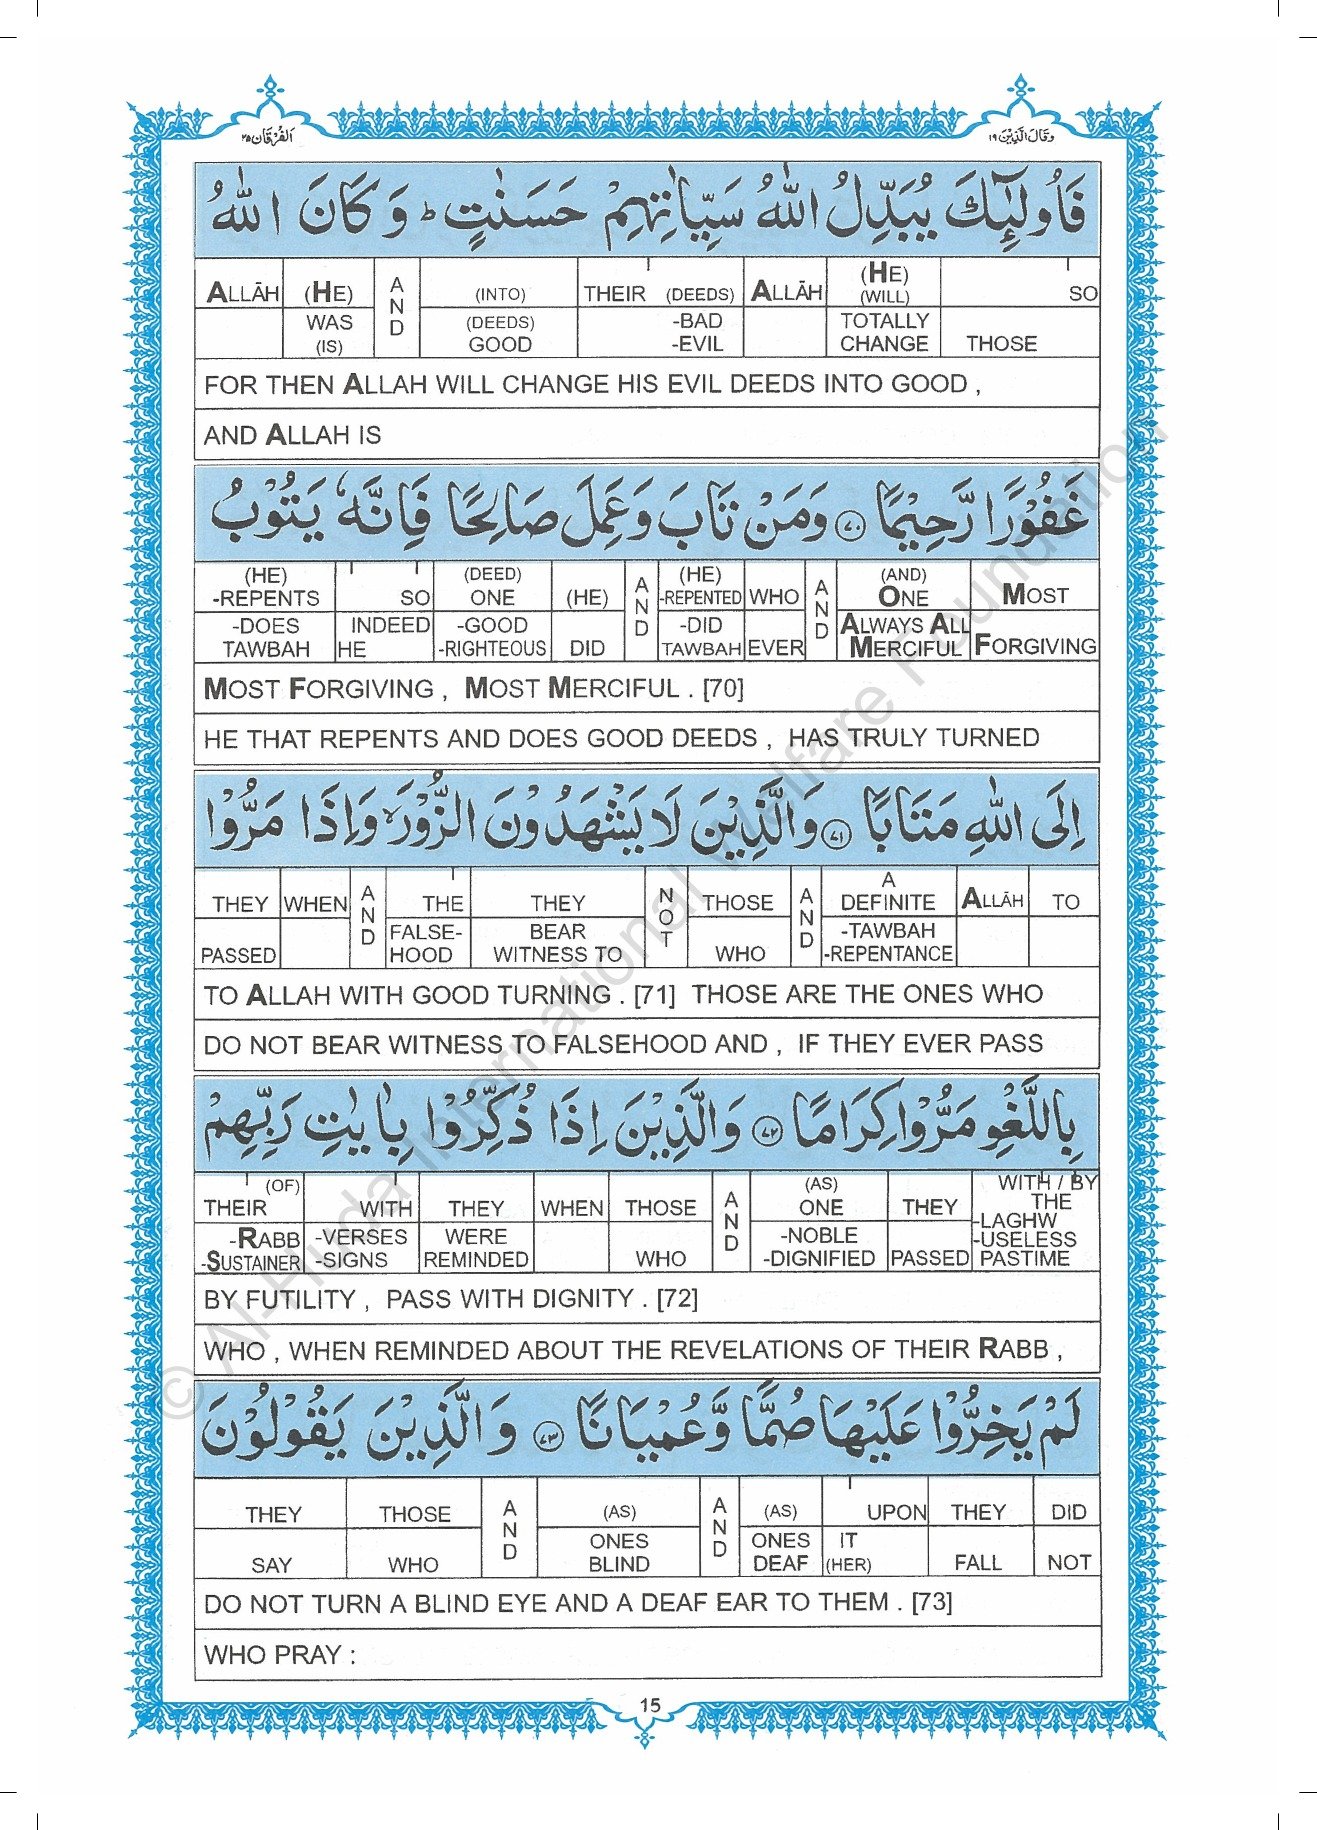 وقال الذين ١٩
الفرقان ٢٥
فَاُولٰٓئِكَ يُبَدِّلُ اللّٰهُ سَيِّاٰتِهِمْ حَسَنٰتٍ ؕ وَ كَانَ اللّٰهُ
ALLĀH (HE) AND (INTO) THEIR (DEEDS) ALLĀH (HE) (WILL) SO
WAS (IS) (DEEDS) GOOD -BAD -EVIL TOTALLY CHANGE THOSE
FOR THEN ALLAH WILL CHANGE HIS EVIL DEEDS INTO GOOD ,
AND ALLAH IS
غَفُوْرًا رَّحِيْمًا ﴿٧٠﴾ وَمَنْ تَابَ وَعَمِلَ صَالِحًا فَاِنَّهٗ يَتُوْبُ
(HE) -REPENTS SO (DEED) ONE (HE) AND (HE) -REPENTED WHO AND (AND) ONE MOST
-DOES TAWBAH INDEED HE -GOOD -RIGHTEOUS DID -DID TAWBAH EVER ALWAYS ALL MERCIFUL FORGIVING
MOST FORGIVING , MOST MERCIFUL . [70]
HE THAT REPENTS AND DOES GOOD DEEDS , HAS TRULY TURNED
اِلَى اللّٰهِ مَتَابًا ﴿٧١﴾ وَالَّذِيْنَ لَا يَشْهَدُوْنَ الزُّوْرَ ۙ وَاِذَا مَرُّوْا
THEY WHEN AND THE THEY NOT THOSE AND A DEFINITE ALLĀH TO
PASSED FALSE-HOOD BEAR WITNESS TO WHO -TAWBAH -REPENTANCE
TO ALLAH WITH GOOD TURNING . [71] THOSE ARE THE ONES WHO
DO NOT BEAR WITNESS TO FALSEHOOD AND , IF THEY EVER PASS
بِاللَّغْوِ مَرُّوْا كِرَامًا ﴿٧٢﴾ وَالَّذِيْنَ اِذَا ذُكِّرُوْا بِاٰيٰتِ رَبِّهِمْ
(OF) THEIR WITH THEY WHEN THOSE AND (AS) ONE THEY WITH / BY THE
-RABB -SUSTAINER -VERSES -SIGNS WERE REMINDED WHO -NOBLE -DIGNIFIED PASSED -LAGHW -USELESS PASTIME
BY FUTILITY , PASS WITH DIGNITY . [72]
WHO , WHEN REMINDED ABOUT THE REVELATIONS OF THEIR RABB ,
لَمْ يَخِرُّوْا عَلَيْهَا صُمًّا وَّعُمْيَانًا ﴿٧٣﴾ وَالَّذِيْنَ يَقُوْلُوْنَ
THEY THOSE AND (AS) AND (AS) UPON THEY DID
SAY WHO ONES BLIND ONES DEAF IT (HER) FALL NOT
DO NOT TURN A BLIND EYE AND A DEAF EAR TO THEM . [73]
WHO PRAY :
15
© Al-Huda International Welfare Foundation